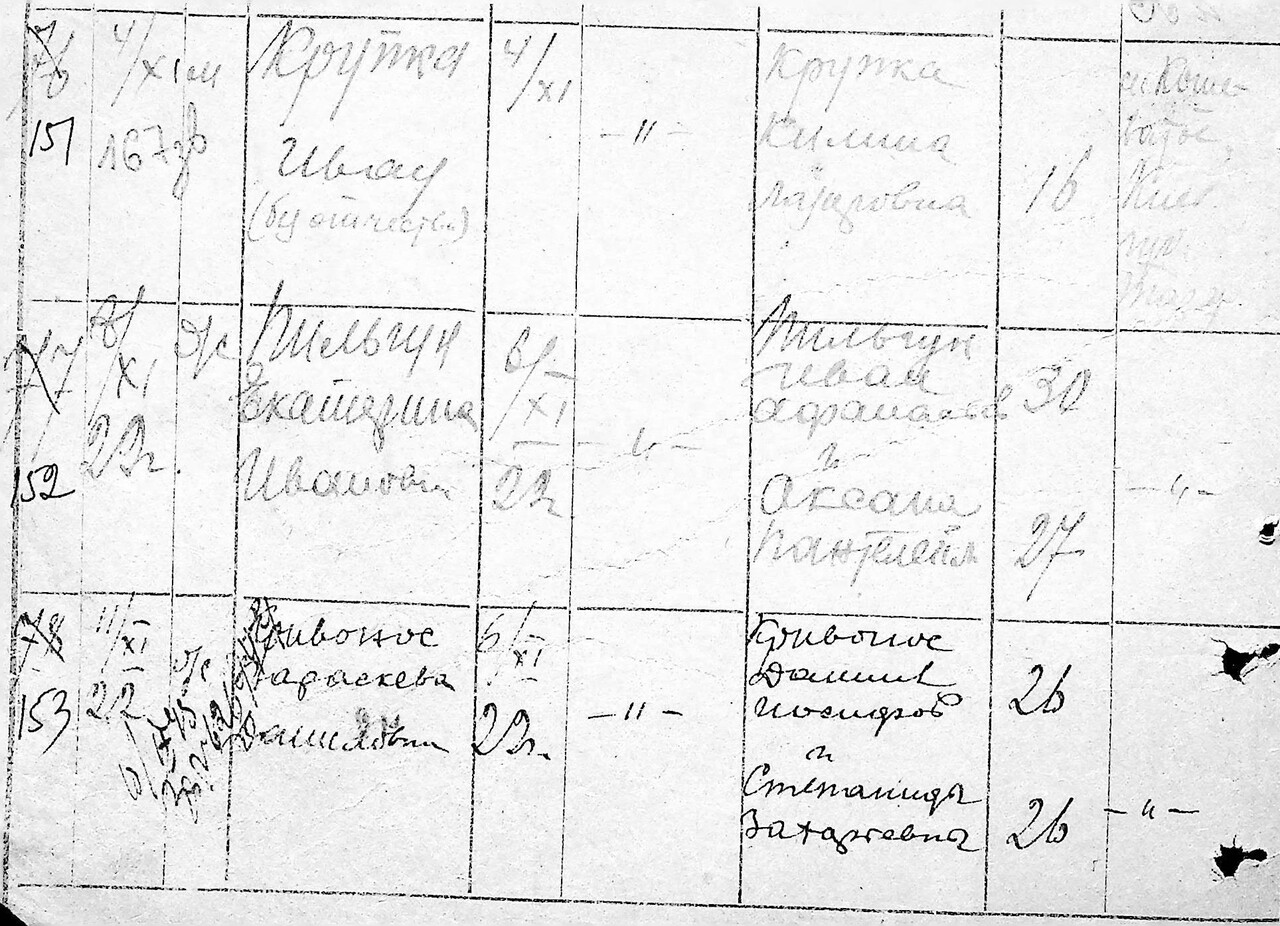 76
151
4/XI
м
Крупка
Иван
(без отчества)
4/XI
—〃—
Крупка
Килина
Лазаровна
16
Киев
77
152
6/XI
22г.
ж
Пильгун
Екатерина
Ивановн
6/XI
22
—〃—
Пильгун
Иван
Афанасьев
и
Оксана
Пантелейм
30
27
—〃—
78
153
11/XI
22
ж
Кривонос
Параскева
Даниловн
6/XI
22г.
—〃—
Кривонос
Даниил
Иосифов
и
Степанида
Захарьевна
26
26
—〃—